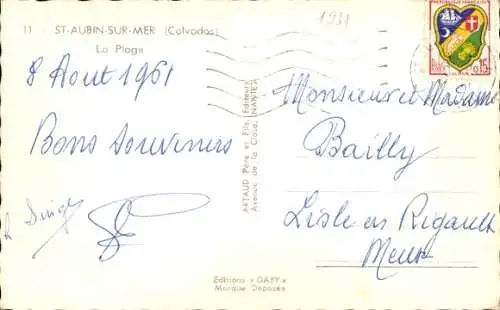 11 ST-AUBIN-SUR-MER (Calvados)
La Plage
1931
8 Aout 1961
Bons Souvenirs
ARTAUD Père et Fils, Editeurs
Avenue de la Close, NANTES
REPUBLIQUE FRANCAISE
0,15
Monsieur et Madame
Bailly
Lisle en Rigault
Meuse
Editions « GABY »
Marque Déposée